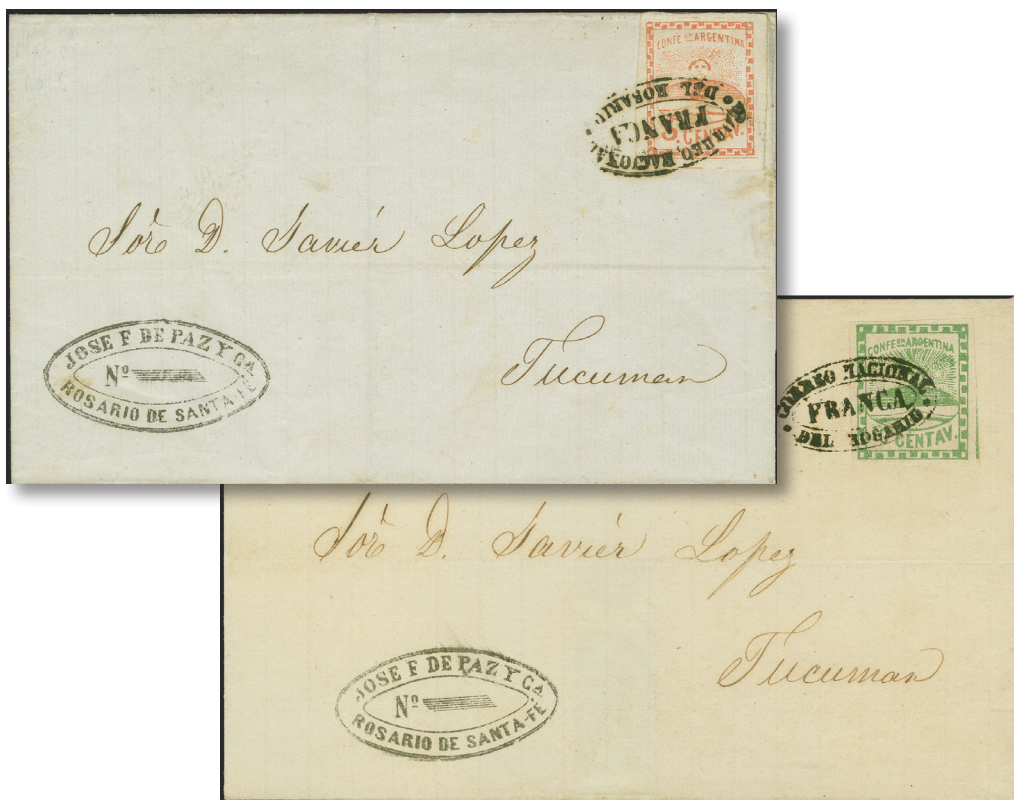 CONFE ON ARGENTINA
CORREO NACIONAL
FRANCA
DEL ROSARIO
5 CENTAV.
Sōr D. Javiér Lopez
Tucuman
JOSE F DE PAZ Y CA.
Nº
ROSARIO DE SANTA-FÉ
CONFE ON ARGENTINA
CORREO NACIONAL
FRANCA
DEL ROSARIO
CENTAV.
Sōr D. Javiér Lopez
Tucuman
JOSE F DE PAZ Y CA.
Nº
ROSARIO DE SANTA-FÉ